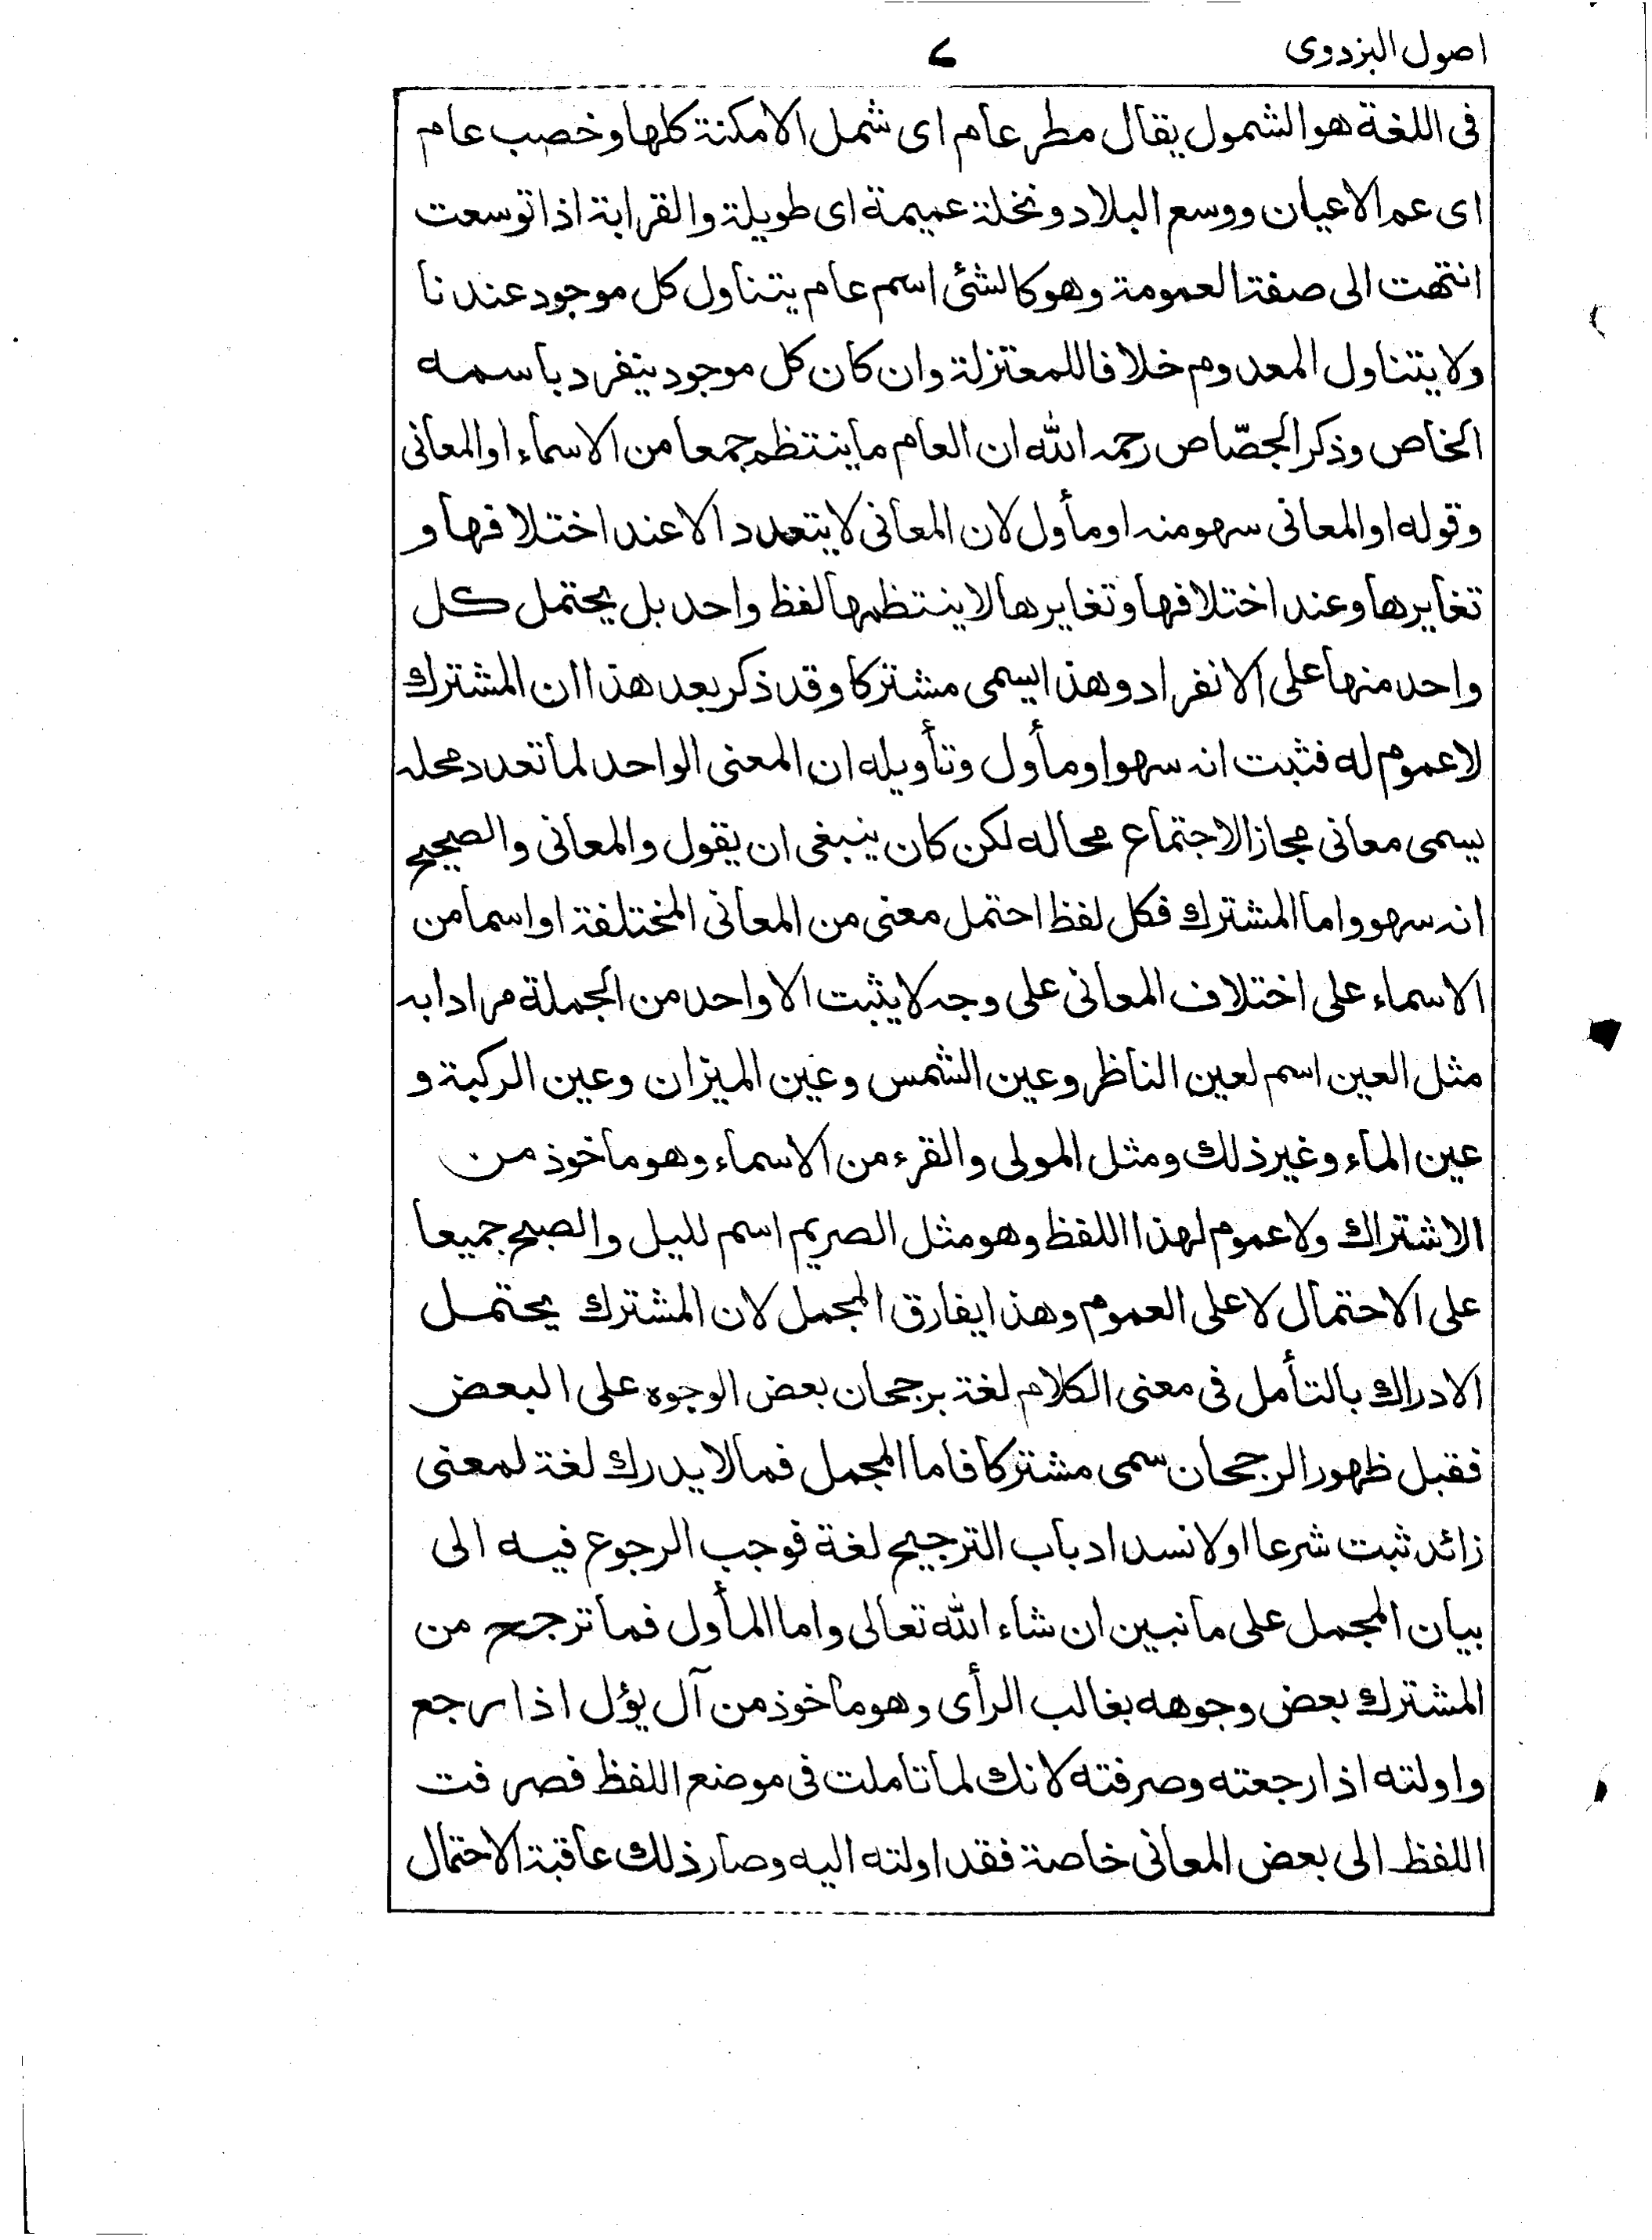 اصول البزدوی ۷
فی اللغة هو الشمول یقال مطر عام ای شمل الامکنة کلها و خصب عام
ای عم الاعیان ووسع البلاد و نخلة عمیمة ای طویلة والقرابة اذا توسعت
انتهت الی صفة العمومة وهو کالشئ اسم عام یتناول کل موجود عندنا
ولا یتناول المعدوم خلافا للمعتزلة وان کان کل موجود ینفرد باسمه
الخاص وذکر الجصّاص رحمه الله ان العام ما ینتظم جمعا من الاسماء او المعانی
وقوله او المعانی سهو منه او مأول لان المعانی لا یتعدد الا عند اختلافها و
تغایرها وعند اختلافها وتغایرها لا ینتظمها لفظ واحد بل یحتمل کل
واحد منها علی الانفراد وهذا یسمی مشترکا وقد ذکر بعد هذا ان المشترك
لا عموم له فثبت انه سهو او مأول وتأویله ان المعنی الواحد لما تعدد محله
یسمی معانی مجازا لاجتماع محاله لکن کان ینبغی ان یقول والمعانی والصحیح
انه سهو واما المشترك فکل لفظ احتمل معنی من المعانی المختلفة او اسما من
الاسماء علی اختلاف المعانی علی وجه لا یثبت الا واحد من الجملة مرادا به
مثل العین اسم لعین الناظر وعین الشمس وعین المیزان وعین الرکبة و
عین الماء وغیر ذلك ومثل المولی والقرء من الاسماء وهو ماخوذ من
الاشتراك ولا عموم لهذا اللفظ وهو مثل الصریم اسم للیل والصبح جمیعا
علی الاحتمال لا علی العموم وهذا یفارق المجمل لان المشترك یحتمل
الادراك بالتأمل فی معنی الکلام لغة برجحان بعض الوجوه علی البعض
فقبل ظهور الرجحان سمی مشترکا فاما المجمل فما لا یدرك لغة لمعنی
زائد ثبت شرعا او لانسداد باب الترجیح لغة فوجب الرجوع فیه الی
بیان المجمل علی ما نبین ان شاء الله تعالی واما المأول فما ترجح من
المشترك بعض وجوهه بغالب الرأی وهو ماخوذ من آل یؤل اذا رجع
واولته اذا رجعته وصرفته لانك لما تاملت فی موضع اللفظ فصرفت
اللفظ الی بعض المعانی خاصة فقد اولته الیه وصار ذلك عاقبة الاحتمال